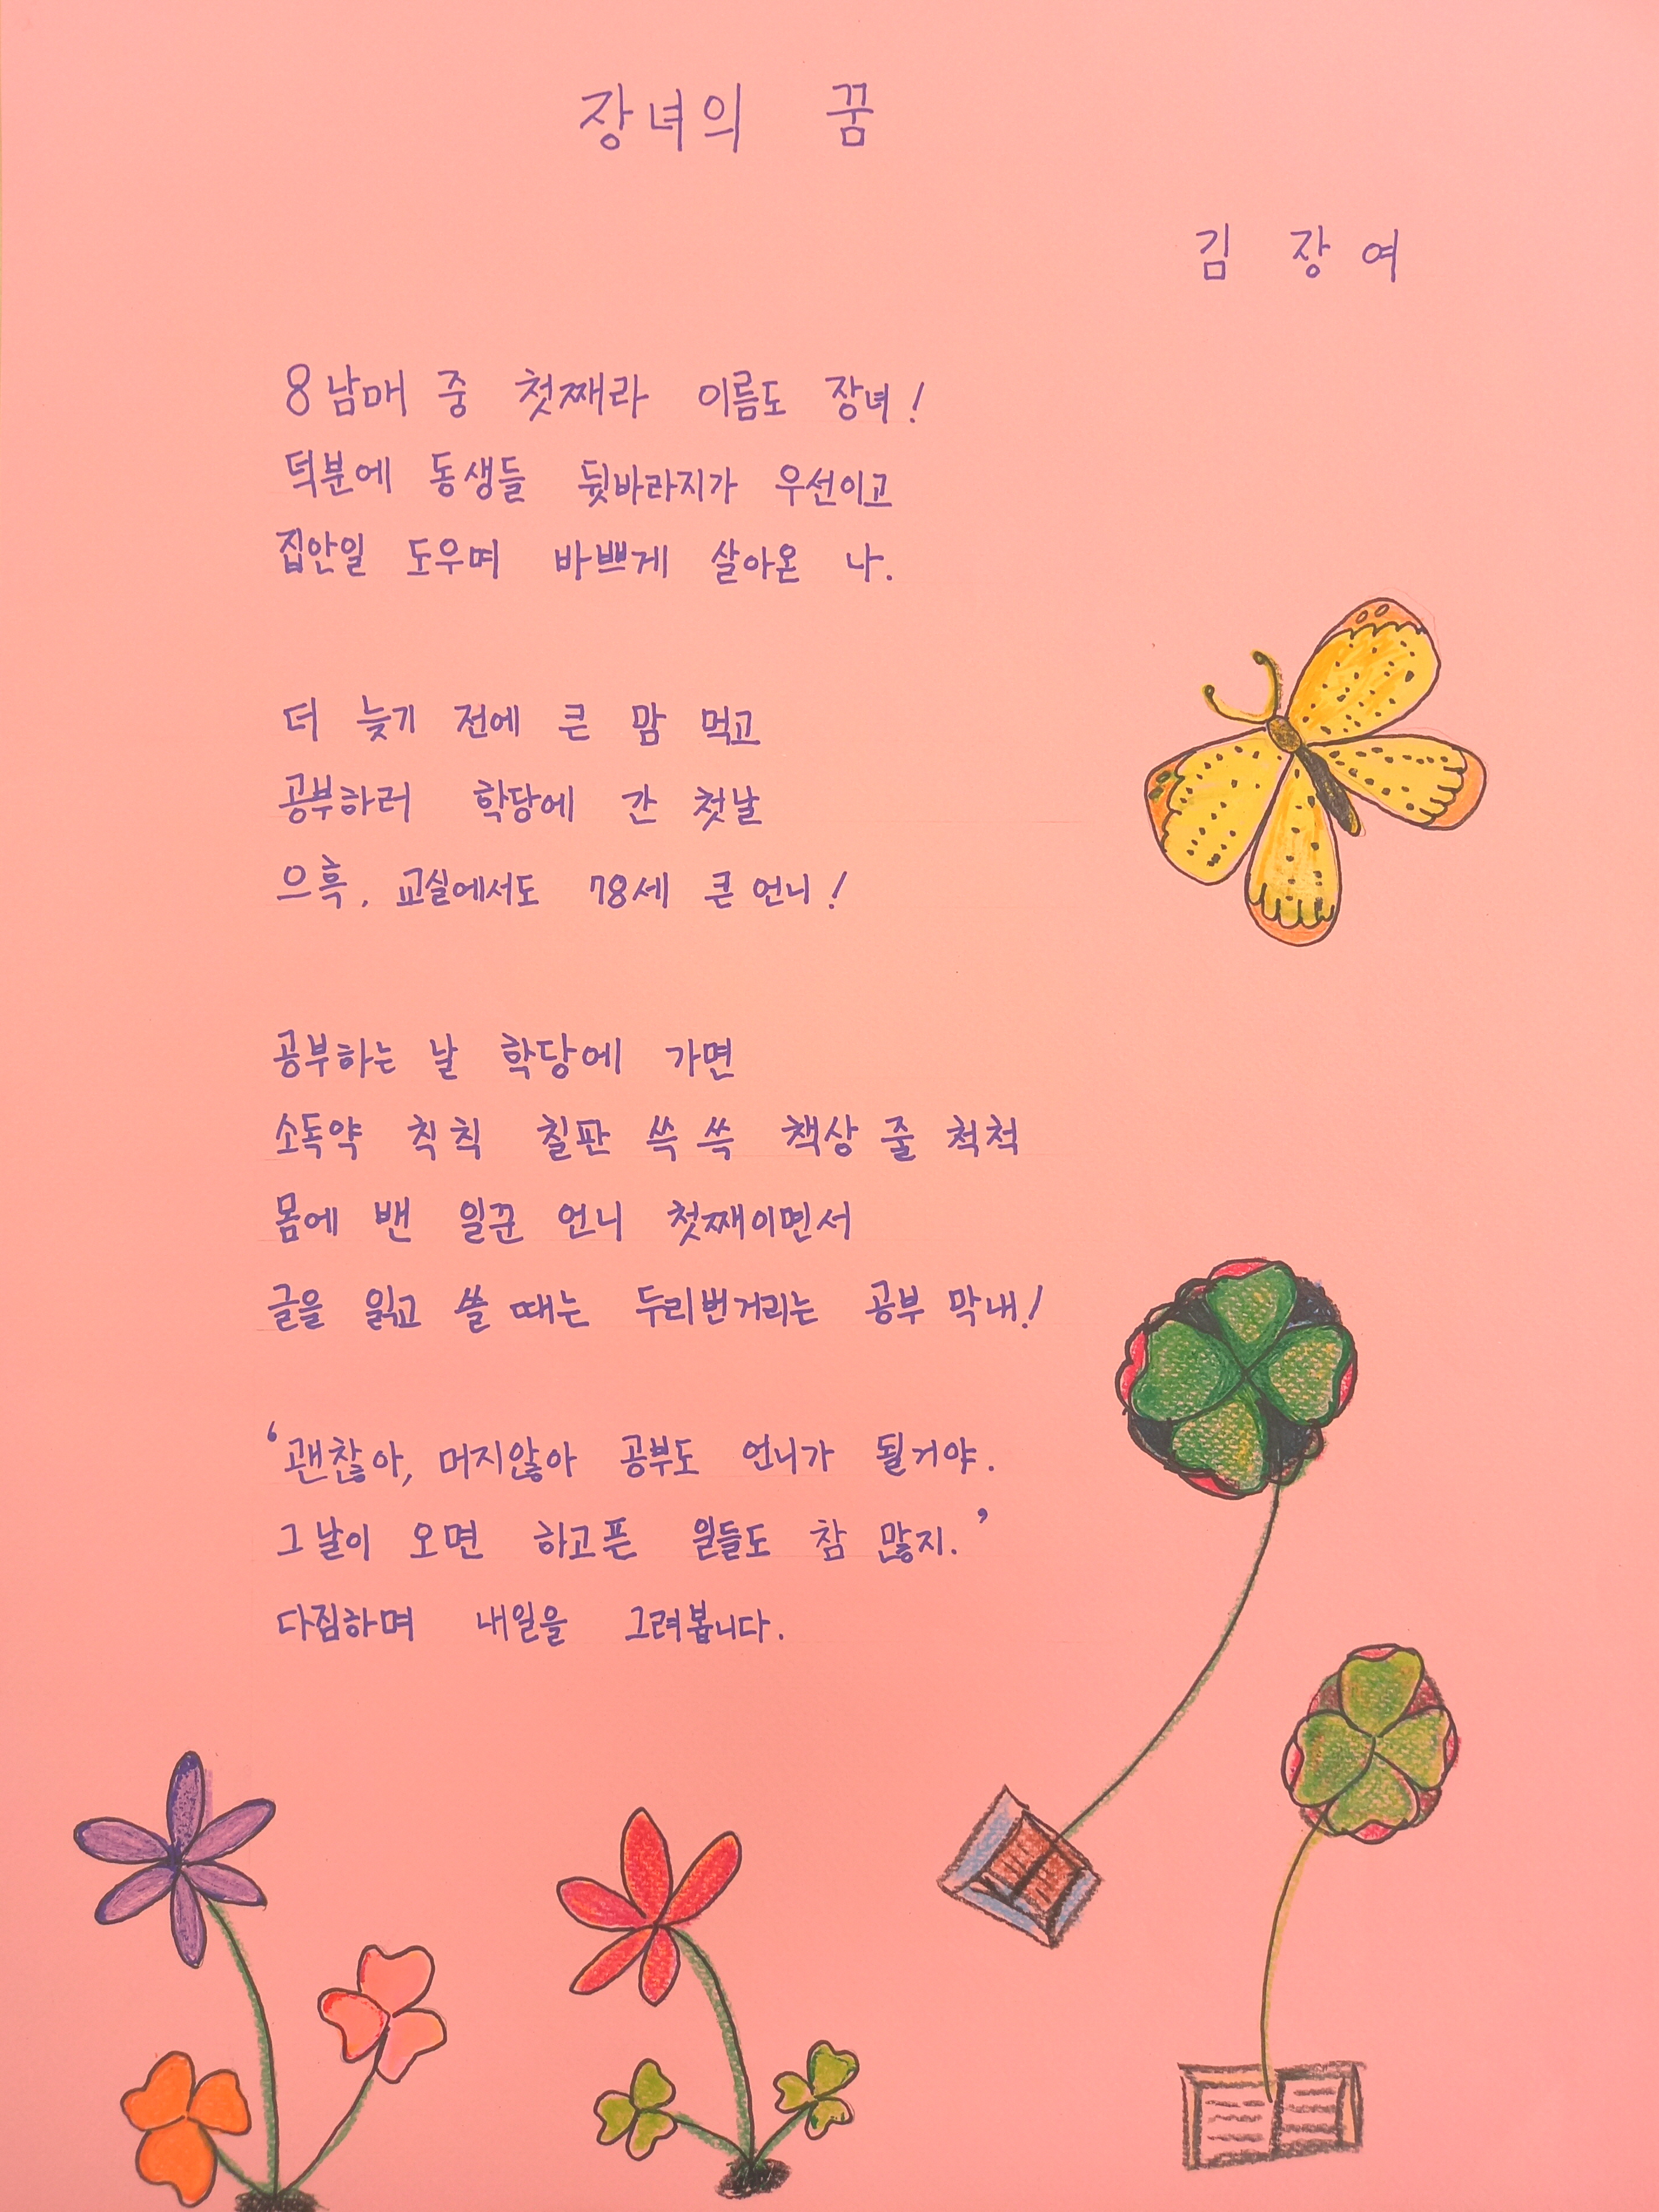 장녀의 꿈
김 장여
8남매 중 첫째라 이름도 장녀!
덕분에 동생들 뒷바라지가 우선이고
집안일 도우며 바쁘게 살아온 나.
더 늦기 전에 큰 맘 먹고
공부하러 학당에 간 첫날
으흑, 교실에서도 78세 큰 언니!
공부하는 날 학당에 가면
소독약 칙칙 칠판 쓱쓱 책상 줄 척척
몸에 밴 일꾼 언니 첫째이면서
글을 읽고 쓸 때는 두리번거리는 공부 막내!
‘괜찮아, 머지않아 공부도 언니가 될거야.
그날이 오면 하고픈 일들도 참 많지.’
다짐하며 내일을 그려봅니다.